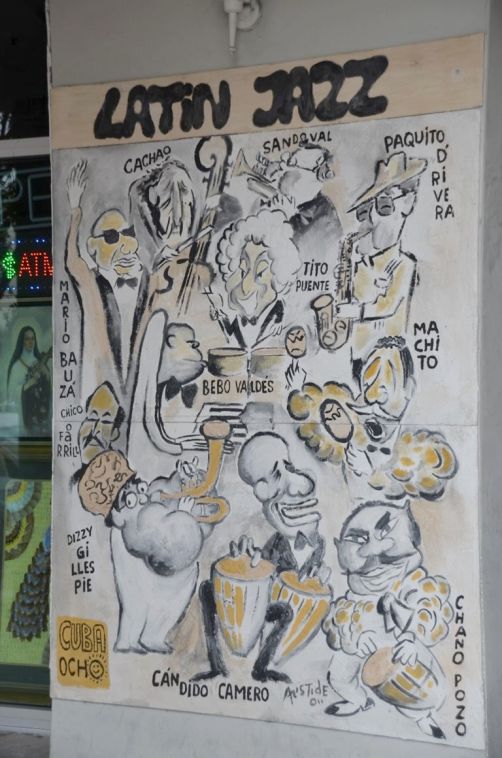 LATIN JAZZ
CACHAO
SANDOVAL
PAQUITO D'RIVERA
TITO
PUENTE
$ATM
MARIO BAUZÁ
MACHITO
BEBO VALDES
CHICO
O'
FARRILL
DIZZY
GILLES
PIE
CUBA
OCHO
CÁNDIDO CAMERO
CHANO POZO